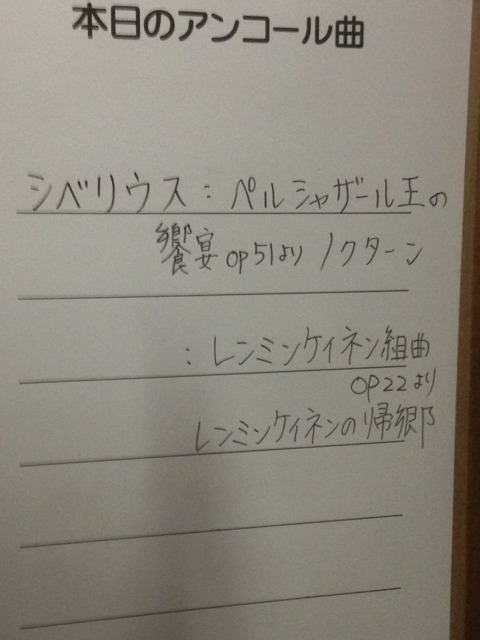 本日のアンコール曲
シベリウス：ペルシャザール王の
饗宴 op51より ノクターン
：レンミンケイネン組曲
op22より
レンミンケイネンの帰郷